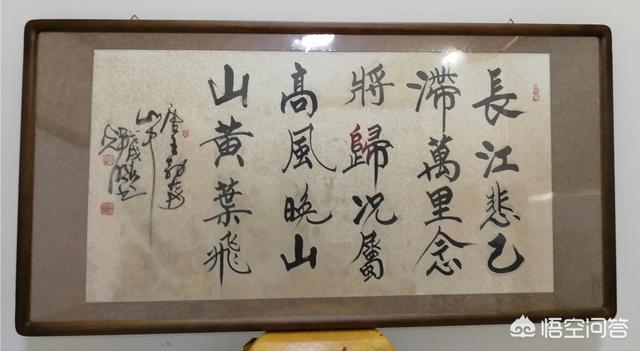 長江悲已
滯萬里念
將歸況屬
高風晚山
山黃葉飛
唐王勃詩
山中
悟空问答